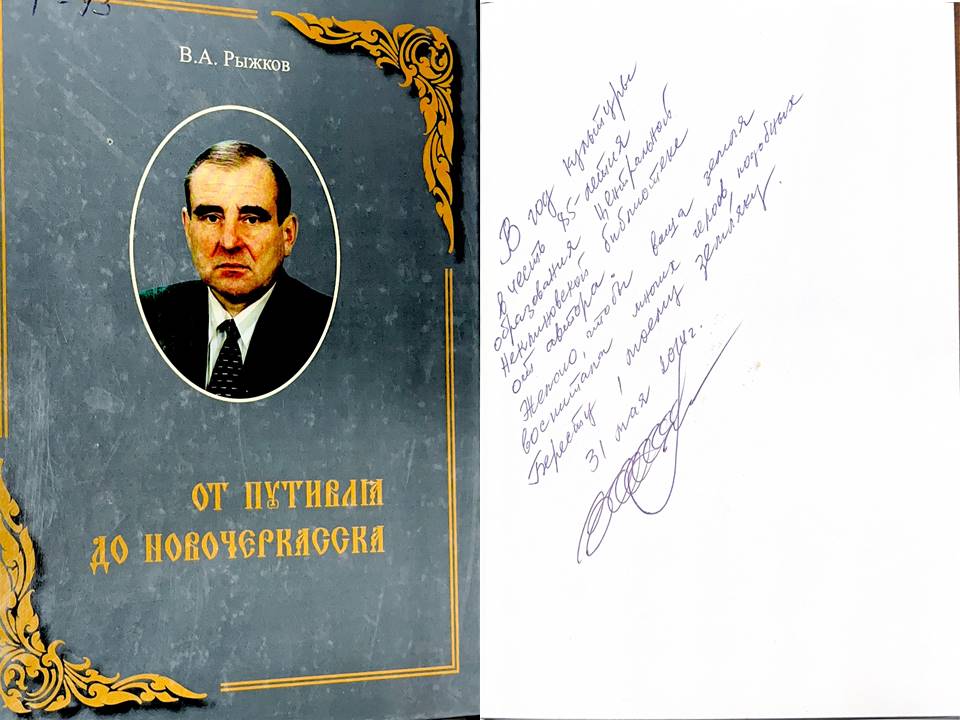 В.А. Рыжков
ОТ ПУТИВЛЯ
ДО НОВОЧЕРКАССКА
В год культуры
в честь 85-летия
образования Центральной
Неклиновской библиотеке
от автора.
Желаю, чтобы ваша земля
воспитала многих героев, подобных
Бересту, моему земляку.
31 мая 2014г.